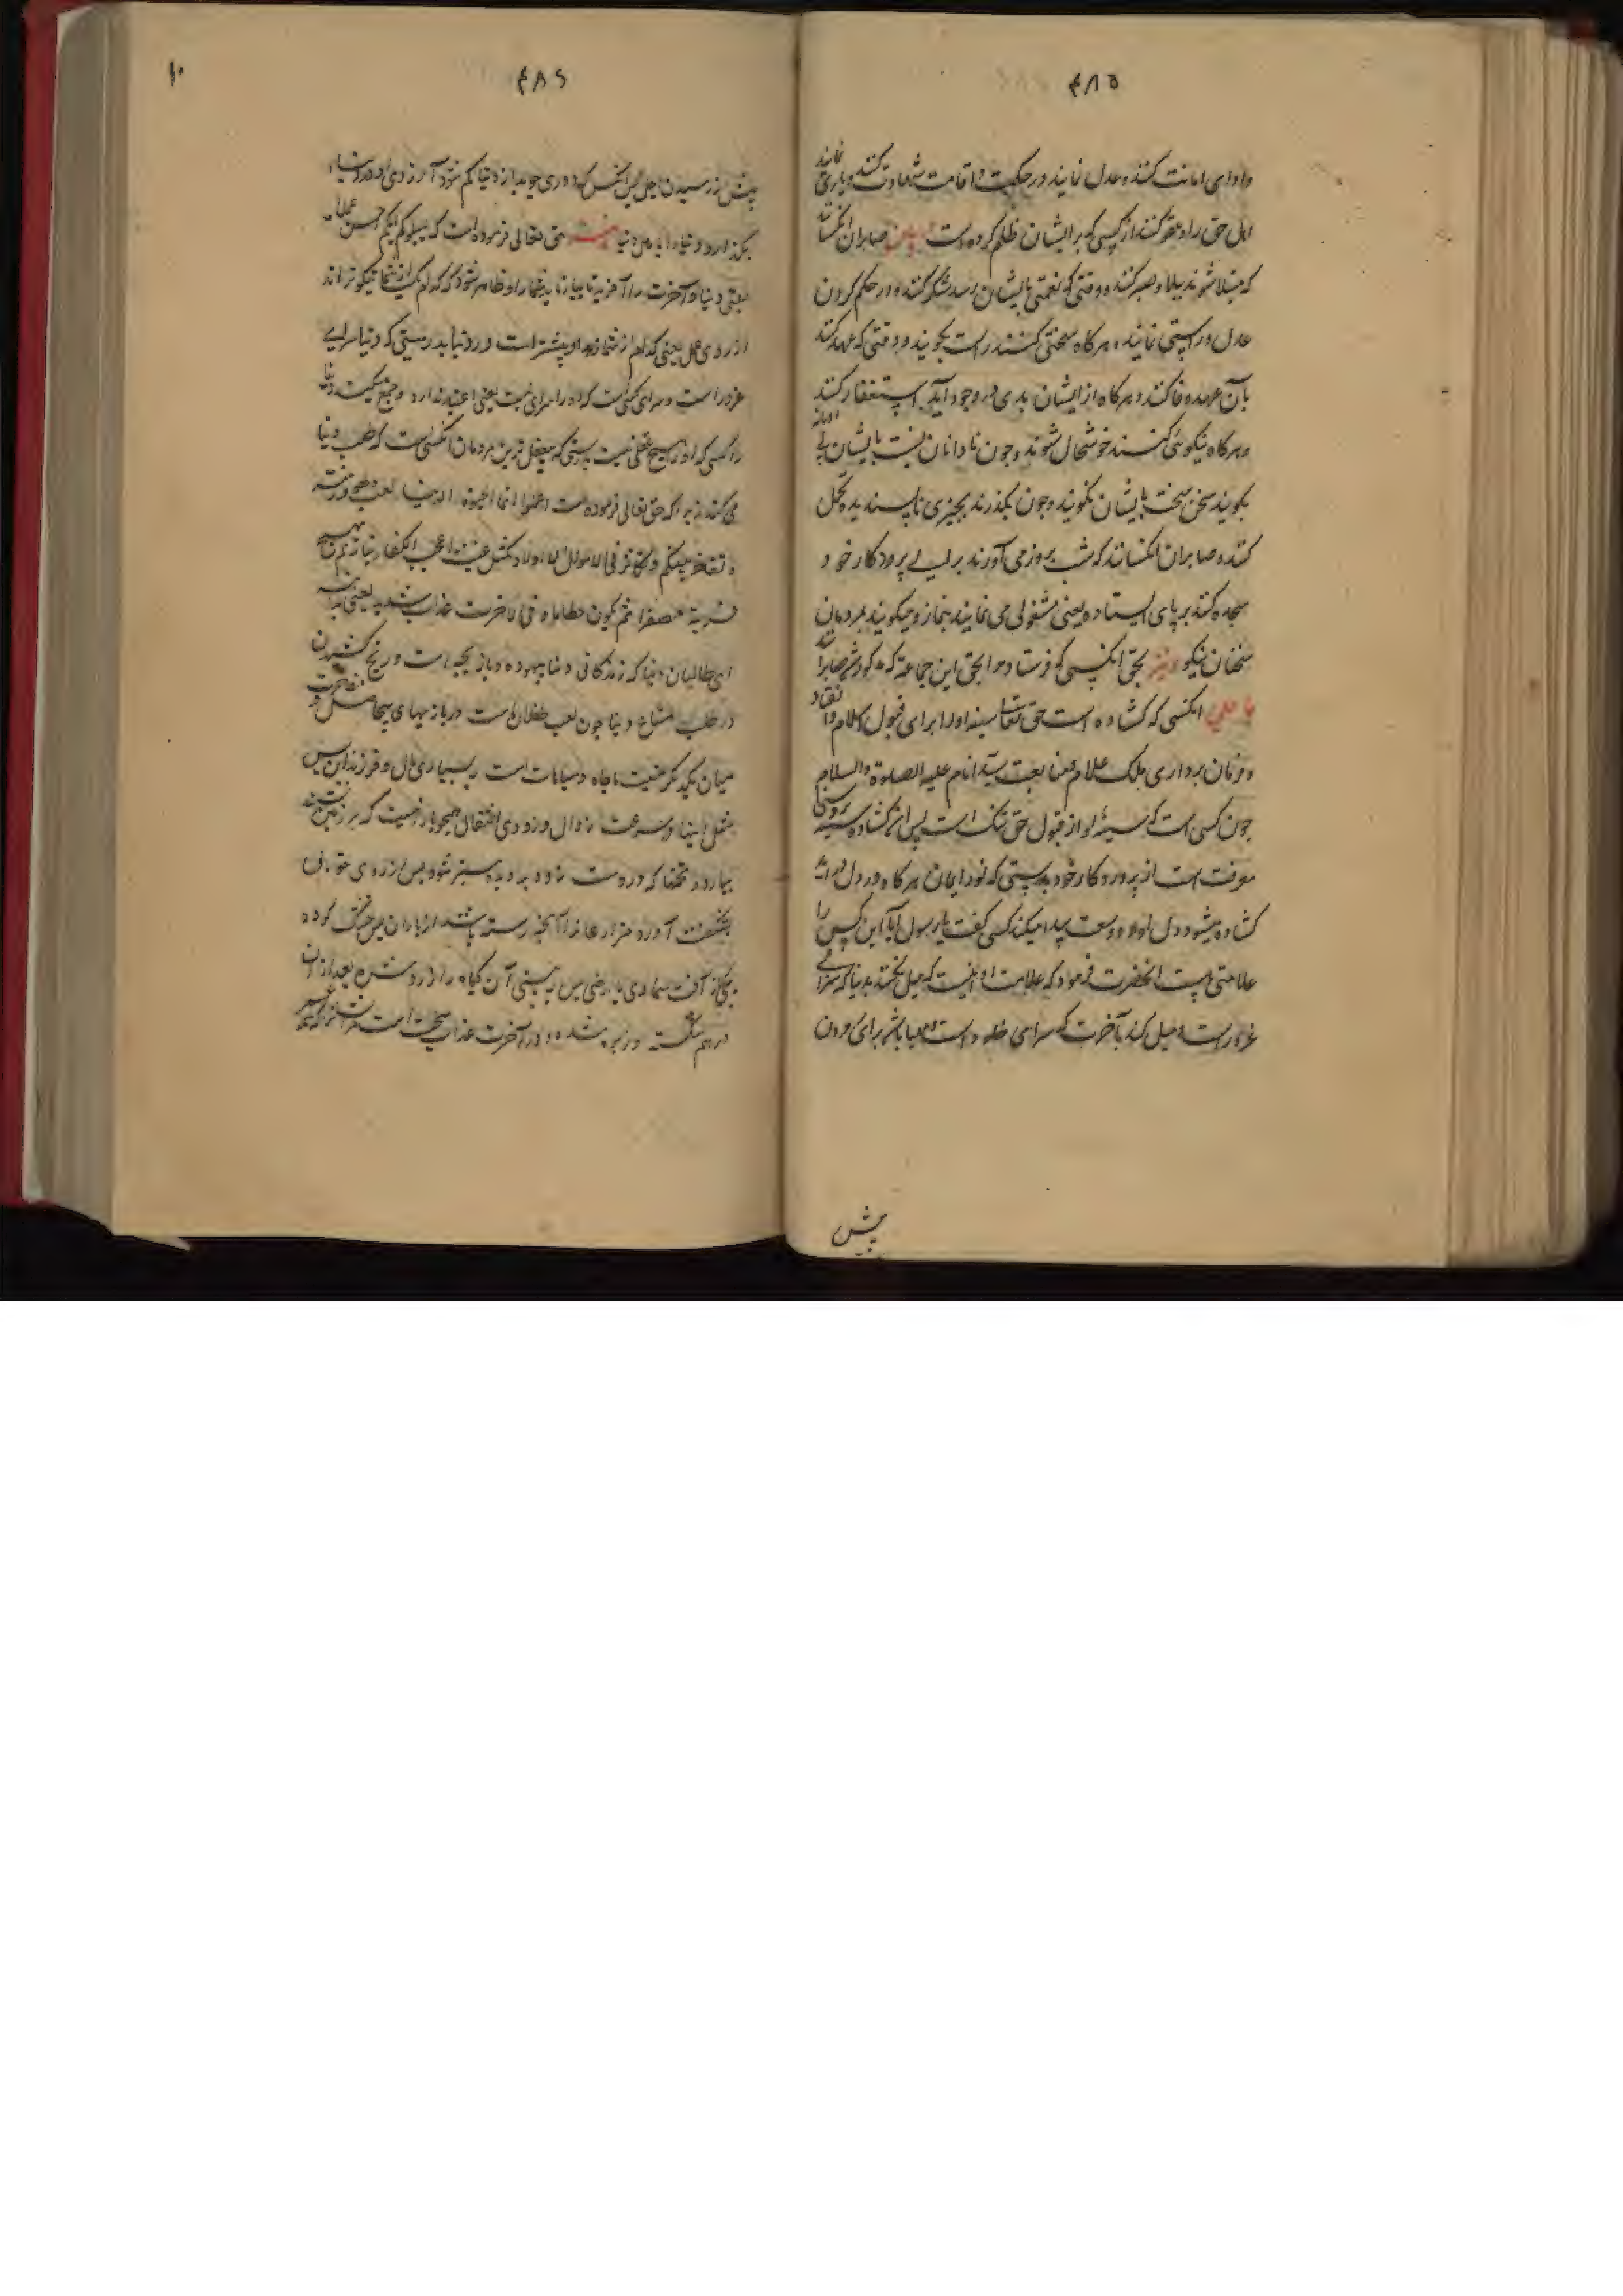 ۴۸۵
و ادای امانت کنند و عدل نمایند در حکمیت و اقامت شهادت کنند و یاری نمایند
اهل حق را و عفو کنند از کسی که بر ایشان ظلم کرده است صابران آنکسانند
که مبتلا شوند ببلا و صبر کنند و وقتی که نعمتی بایشان رسد شکر کنند و در حکم کردن
عدل و راستی نمایند و هرگاه سخنی کنند راست بگویند و وقتی که عهد کنند
بآن عهد وفا کنند و هرگاه از ایشان بدی در وجود آید استغفار کنند
و هرگاه نیکوئی کنند خوشحال شوند و چون نادانان نسبت بایشان بی ادبانه
بگویند سخن سخت بایشان نگویند و چون بگذرند بچیزی ناپسندیده تحمل
کننده صابران آنکسانند که شب بروز می آورند برای پروردگار خود
سجده کنند بر پای ایستاده یعنی مشغولی می نمایند بنماز و میگویند بمردمان
سخنان نیکو بحق آنکسی که فرستاد مرا بحق این جماعة که مذکور شد صابرانند
یا علی آنکسی که گشاده است حق تعالی سینه او را برای قبول کلام و انقیاد
و فرمان برداری ملک علام و متابعت سید انام علیه الصلوة والسلام
چون کسی است که سینهٔ او از قبول حق تنگ است پس این گشاده سینه بر روشنی
معرفت است از پروردگار خود بدرستی که نور ایمان هرگاه در دل در آید
گشاده میشود دل او و وسعت پیدا میکند کسی گفت یا رسول الله آیا این کس را
علامتی هست آنحضرت فرمود که علامت او اینست که میل نکند بدنیا که سرای
غرار است و میل کند بآخرت که سرای خلود است و مهیا باشد برای مردن
پیش
۴۸۶
۱۰
پیش از رسیدن اجل پس آنکس که دوری جوید از دنیا کم شود آرزوی او در دنیا و
بگذارد دنیا را باهل دنیا حق تعالی فرموده است که لیبلوکم ایکم احسن عملا
یعنی دنیا و آخرت را آفرید تا بیازماید شما را و ظاهر شود که کدام یک از شما نیکوترند
از روی عمل یعنی که کدام از شما زهد او بیشتر است در دنیا بدرستی که دنیا سرای
غرور است و سرای کسی است که او را سرای نیست یعنی اعتبار ندارد و جمع میکند دنیا
را کسی که او را هیچ عقلی نیست بدرستی که بیعقل ترین مردمان آنکسی است که طلب دنیا
می کند زیرا که حق تعالی فرموده است اعلموا انما الحیوة الدنیا لعب و لهو و زینة
و تفاخر بینکم و تکاثر فی الاموال و الاولاد کمثل غیث اعجب الکفار نباته ثم یهیج
فتریه مصفرا ثم یکون حطاما و فی الاخرة عذاب شدید یعنی بدانید
ای طالبان دنیا که زندگانی دنیا بیهوده و بازیچه است و رنج کشیدن
در طلب متاع دنیا چون لعب طفلان است در بازیهای بیحاصل و مفاخرت
میان یکدیگر بجاه و مباهات است به بسیاری مال و فرزندان پس
مثل اینها در سرعت زوال و زودی انتقال همچو بارانیست که بر زمین
ببارد و تخمها که در وست
بشگفت آورد مزارعان را آنچه رسته باشد از باران پس خشک گردد
بآفت سماوی یا ارضی پس ببینی آن گیاه را زرد شده بعد از آن
درهم شکسته و ریزه شده و در آخرت عذاب سخت است